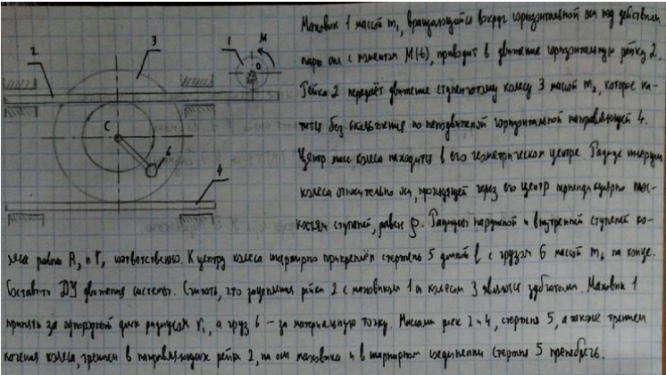 Маховик 1 массой m₁, вращающийся вокруг горизонтальной оси под действием
пары сил с моментом M(t), приводит в движение горизонтальную рейку 2.
Рейка 2 передаёт движение ступенчатому колесу 3 массой m₃, которое ка-
тится без скольжения по неподвижной горизонтальной направляющей 4.
Центр масс колеса находится в его геометрическом центре. Радиус инерции
колеса относительно оси, проходящей через его центр перпендикулярно плос-
костям ступеней, равен ρ. Радиусы наружной и внутренней ступеней ко-
леса равны R₃ и r₃ соответственно. К центру колеса шарнирно прикреплён стержень 5 длиной l, с грузом 6 массой m₆ на конце.
Составить ДУ движения системы. Считать, что зацепления рейки 2 с маховиком 1 и колесом 3 являются зубчатыми. Маховик 1
принять за однородный диск радиусом r₁, а груз 6 – за материальную точку. Массами реек 2 и 4, стержня 5, а также трением
качения колеса, трением в направляющих рейки 2, на оси маховика и в шарнирном соединении стержня 5 пренебречь.
2
3
1
M
O
C
6
4